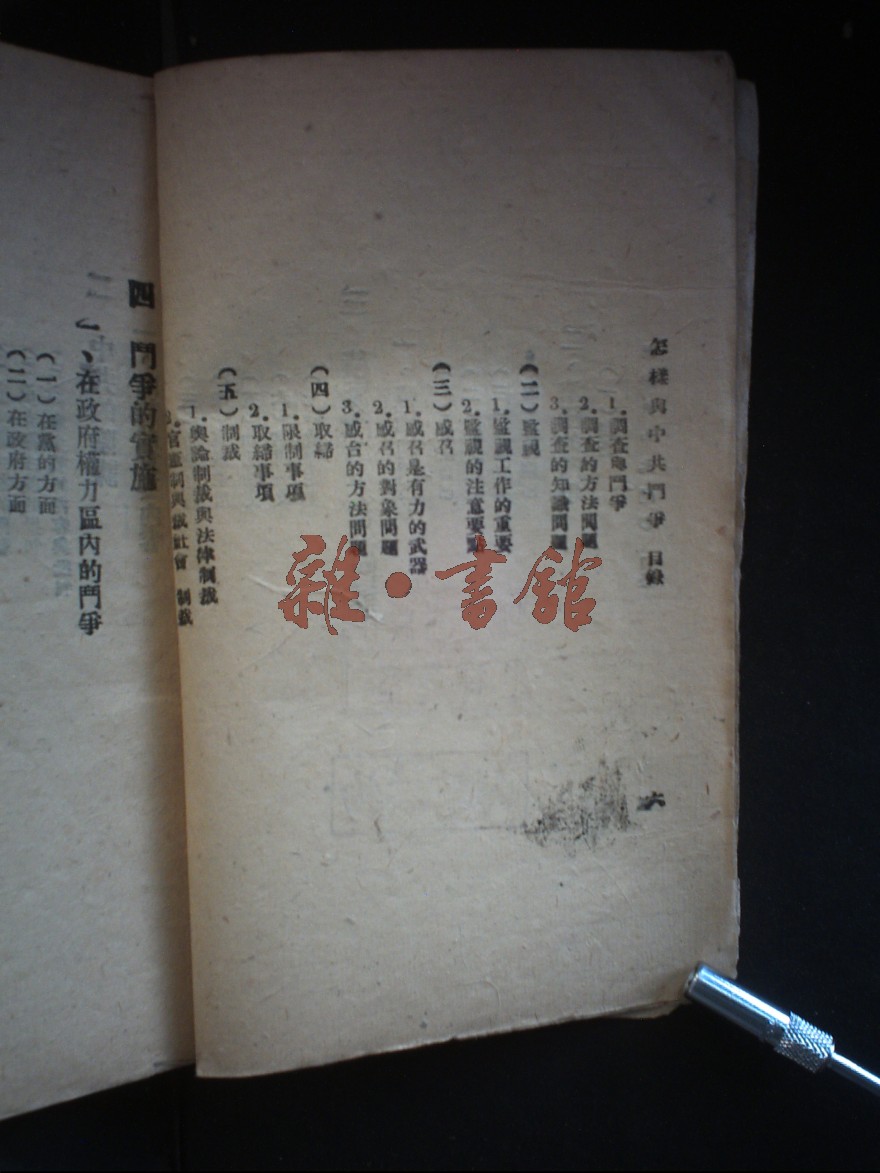 怎樣與中共鬥爭 目錄
六
1.調查與鬥爭
2.調查的方法問題
3.調查的知識問題
(二)監視
1.監視工作的重要
2.監視的注意要點
(三)感召
1.感召是有力的武器
2.感召的對象問題
3.感台的方法問題
(四)取締
1.限制事項
2.取締事項
(五)制裁
1.輿論制裁與法律制裁
制裁
四 鬥爭的實施
一、在政府權力區內的鬥爭
(一)在黨的方面
(二)在政府方面
雜·書館